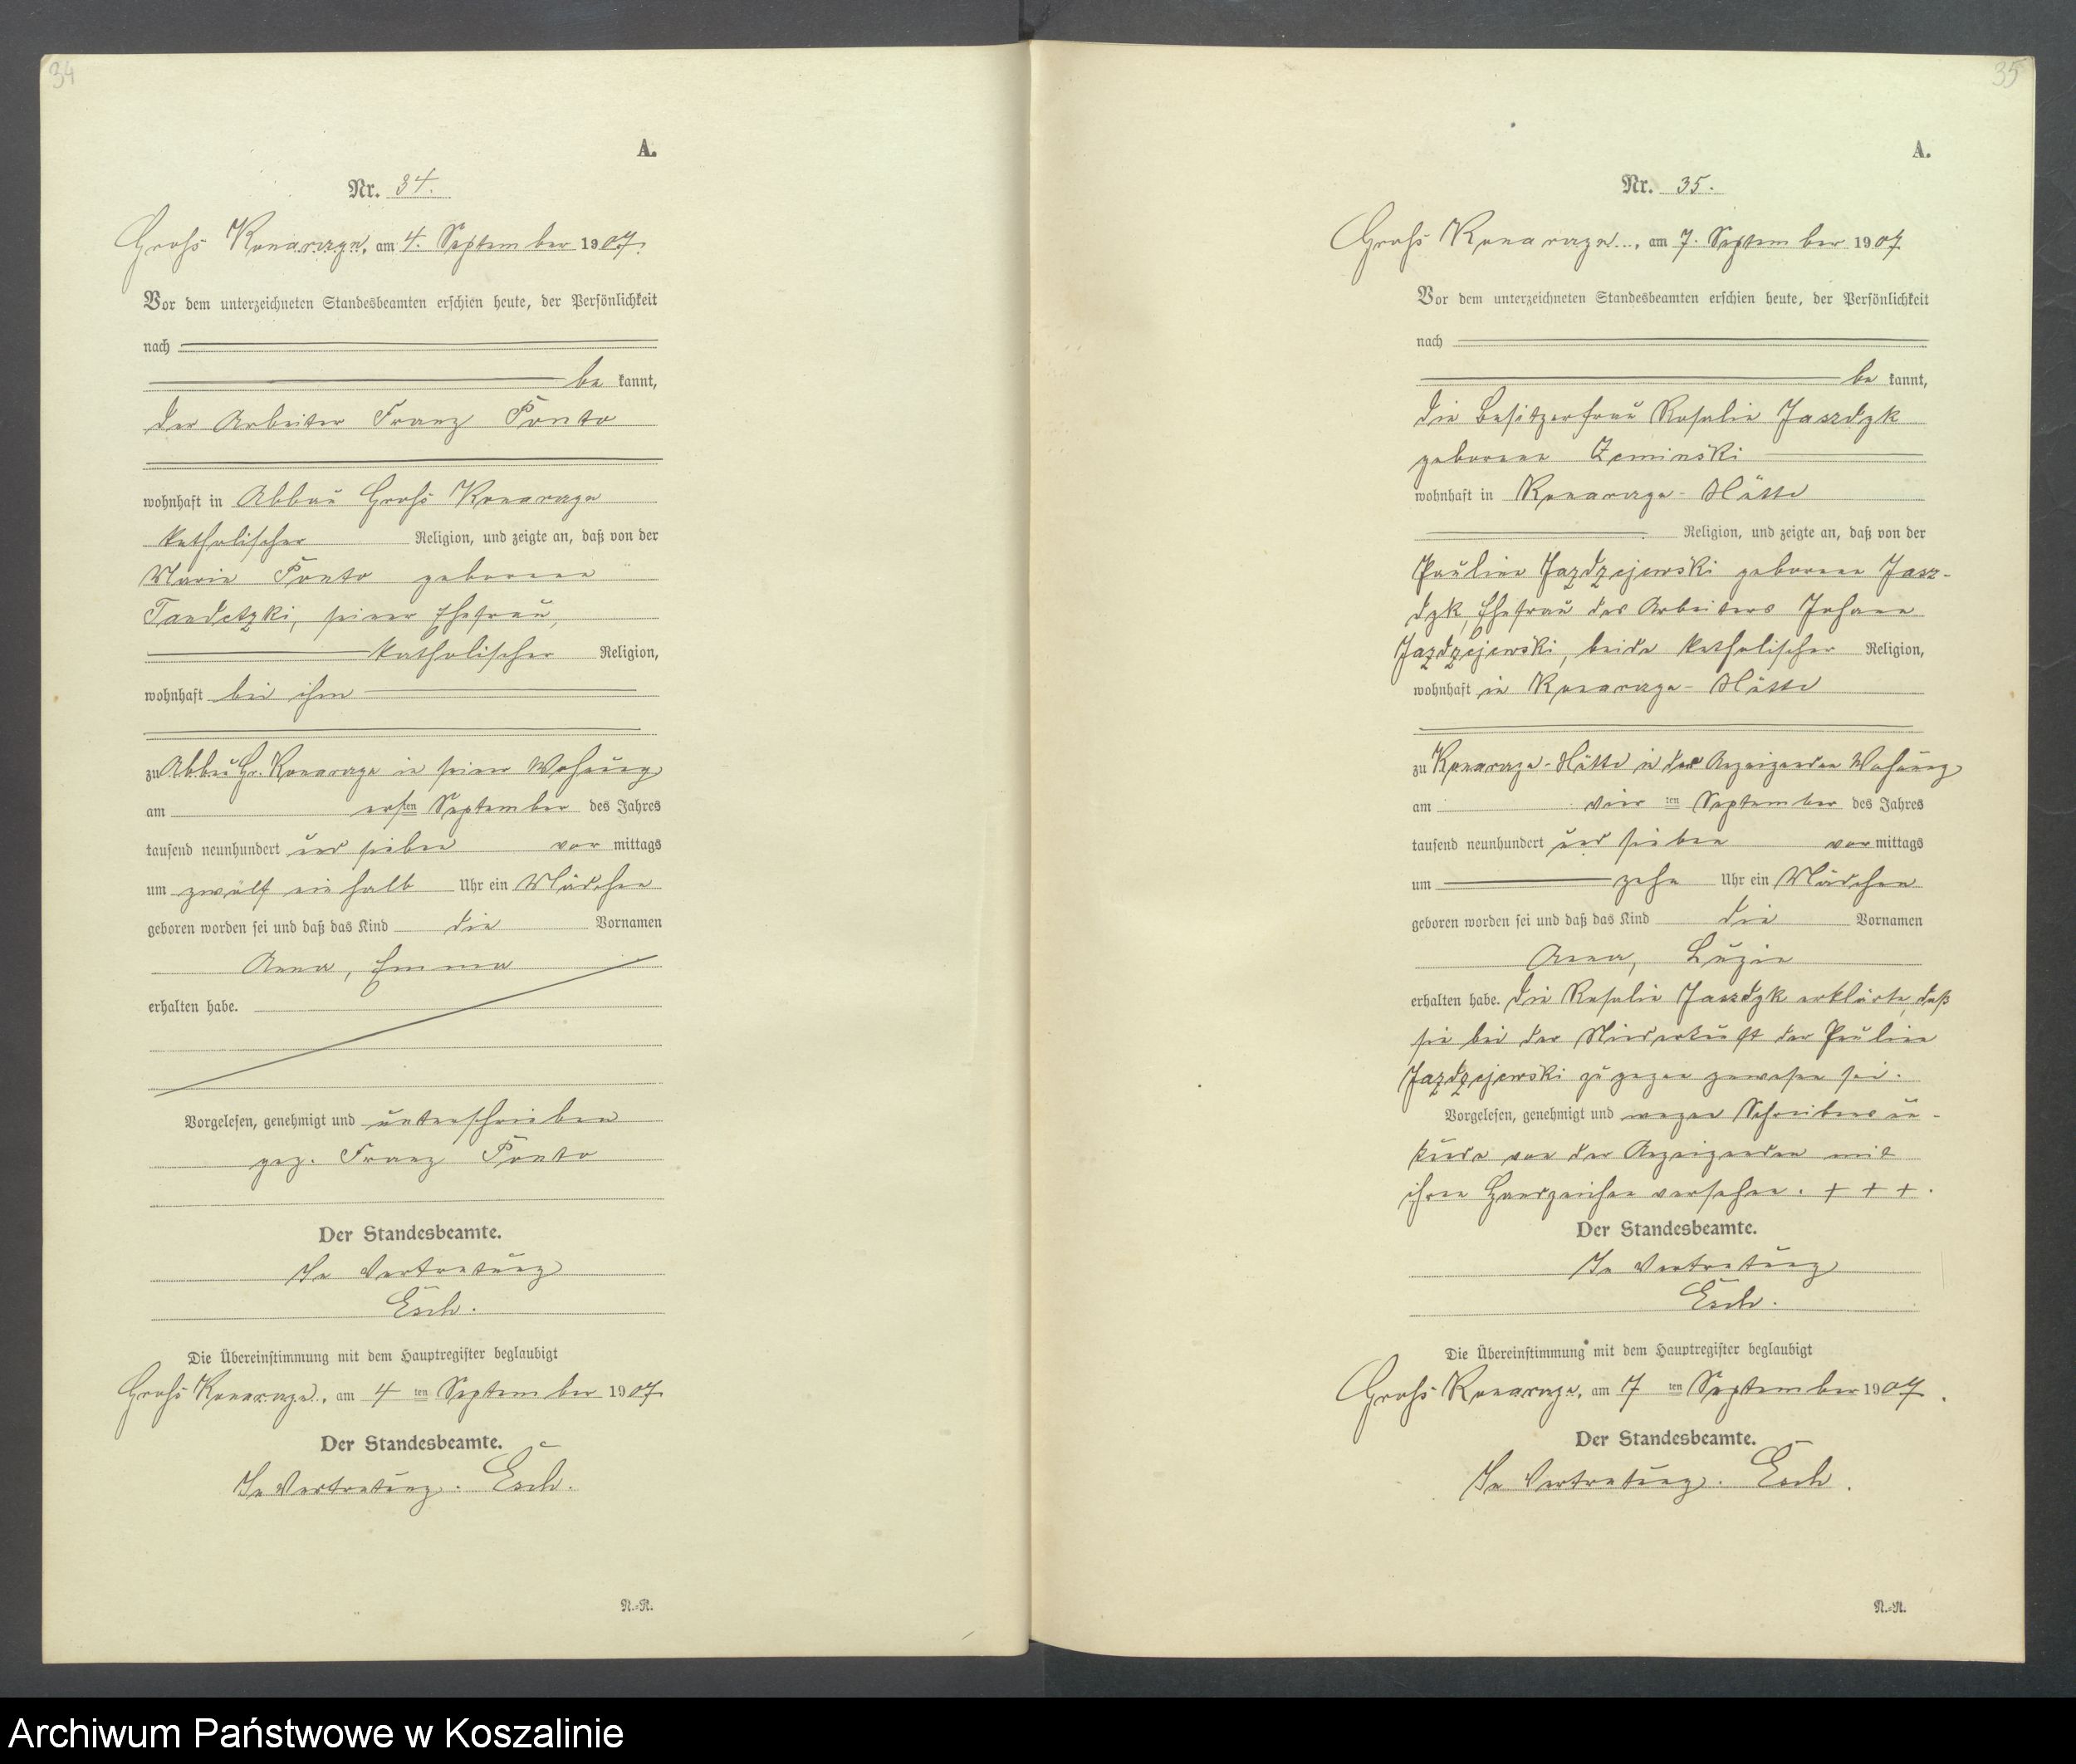 34
A.
Nr. 34.
Groß Konarczyn, am 4. September 1907.
Vor dem unterzeichneten Standesbeamten erschien heute, der Persönlichkeit
nach
be kannt,
der Arbeiter Franz Ponto
wohnhaft in Abbau Groß Konarczyn
katholischer Religion, und zeigte an, daß von der
Maria Ponto geborene
Tandetzki, seiner Ehefrau,
katholischer Religion,
wohnhaft bei ihm
zu Abbau Gr. Konarczyn in seiner Wohnung
am ersten September des Jahres
tausend neunhundert und sieben vor mittags
um zwölf ein halb Uhr ein Mädchen
geboren worden sei und daß das Kind die Vornamen
Anna, Emma
erhalten habe.
Vorgelesen, genehmigt und unterschrieben
gez. Franz Ponto
Der Standesbeamte.
In Vertretung
Esch.
Die Übereinstimmung mit dem Hauptregister beglaubigt
Groß Konarczyn, am 4 ten September 1907.
Der Standesbeamte.
In Vertretung. Esch.
N.-R.
35
A.
Nr. 35.
Groß Konarczyn, am 7. September 1907
Vor dem unterzeichneten Standesbeamten erschien heute, der Persönlichkeit
nach
be kannt,
die Besitzerfrau Rosalie Jaszdzk
geborene
wohnhaft in Konarczyn-Hütte
Religion, und zeigte an, daß von der
Pauline Jazdzejewski geborene Jasz-
dzk, Ehefrau des Arbeiters Johann
Jazdzejewski, beide katholischer Religion,
wohnhaft in Konarczyn-Hütte
zu Konarczyn-Hütte in der Anzeigenden Wohnung
am vier ten September des Jahres
tausend neunhundert und sieben vor mittags
um zehn Uhr ein Mädchen
geboren worden sei und daß das Kind die Vornamen
Anna, Luzie
erhalten habe. Die Rosalie Jaszdzk erklärte, daß
sie bei der Niederkunft der Pauline
Jazdzejewski zugegen gewesen sei.
Vorgelesen, genehmigt und wegen Schreibens un-
kunde von der Anzeigenden mit
ihren Handzeichen versehen. + + + .
Der Standesbeamte.
In Vertretung
Esch.
Die Übereinstimmung mit dem Hauptregister beglaubigt
Groß Konarczyn, am 7 ten September 1907.
Der Standesbeamte.
In Vertretung. Esch.
N.-R.
Archiwum Państwowe w Koszalinie